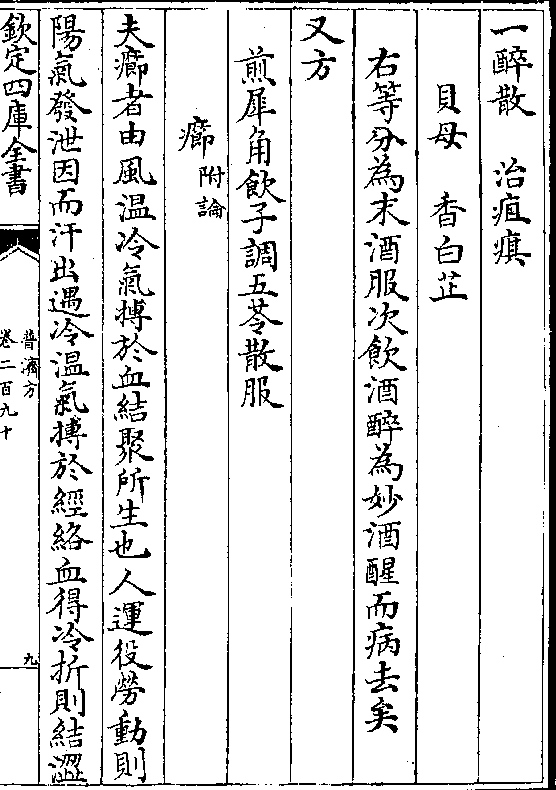 一醉散　治疽瘨
貝母　香白芷
右等分為末酒服次飲酒醉為妙酒醒而病去矣
又方
煎犀角飲子調五苓散服
癤附論
夫癤者由風温冷氣搏於血結聚所生也人運役勞動則
陽氣發泄因而汗出遇冷温氣搏於經絡血得冷折則結澀
欽定四庫全書
普濟方
卷二百九十
九